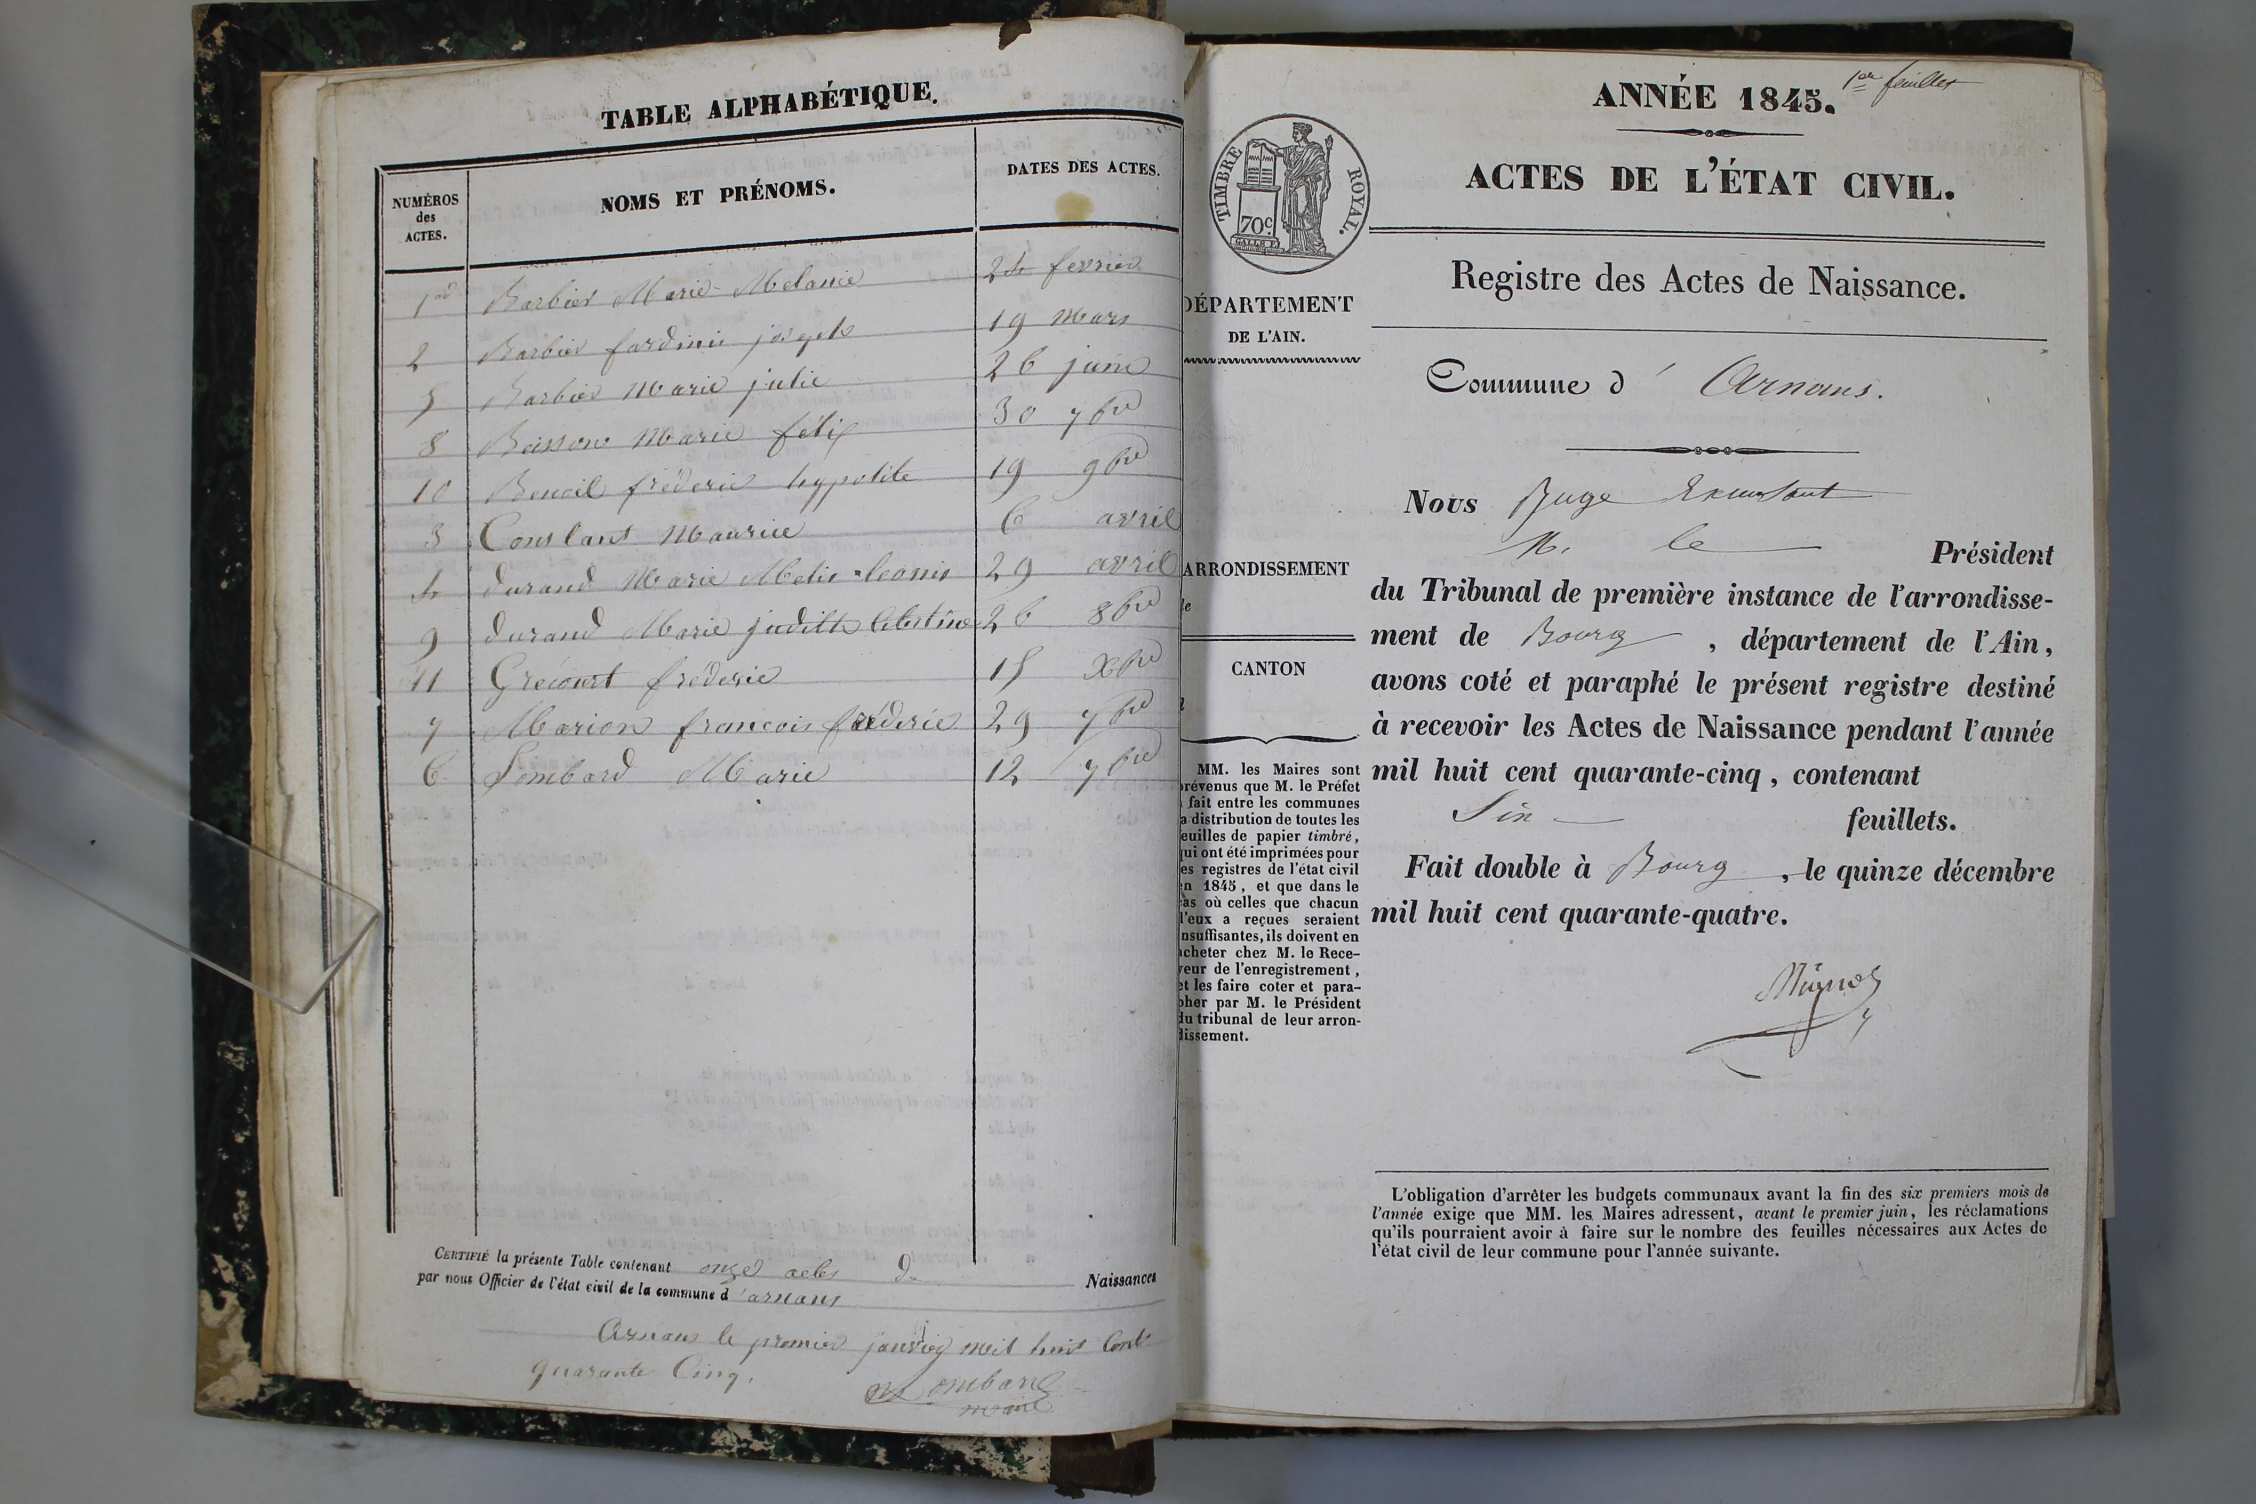 TABLE ALPHABÉTIQUE.
NUMÉROS des ACTES. NOMS ET PRÉNOMS. DATES DES ACTES.
1er Barbier Marie Melanie 24 fevrier
2 Barbier fardinin joseph 19 Mars
5 Barbier Marie julie 26 juin
8 Marie félix 30 7bre
10 Benoit fréderic hyppolite 19 9bre
3 Constant Maurice 6 avril
4 durand Marie Melis leonis 29 avril
9 durand Marie judith Celestine 26 8bre
11 Grécourt fréderic 15 Xbre
7 Marion francois fréderic 29 7bre
6 Lombard Marie 12 7bre
CERTIFIÉ la présente Table contenant onze actes de Naissances
par nous Officier de l'état civil de la commune d'arnans
Arnans le premier janvier mil huit Cent
quarante Cinq.
Lombard
maire
1er feuillet
ANNÉE 1845.
ACTES DE L'ÉTAT CIVIL.
TIMBRE ROYAL.
70c.
Registre des Actes de Naissance.
DÉPARTEMENT
DE L'AIN.
Commune d'Arnans.
Nous Juge
M. le Président
ARRONDISSEMENT
du Tribunal de première instance de l'arrondisse-
ment de Bourg, département de l'Ain,
CANTON
avons coté et paraphé le présent registre destiné
à recevoir les Actes de Naissance pendant l'année
mil huit cent quarante-cinq, contenant
Six feuillets.
Fait double à Bourg, le quinze décembre
mil huit cent quarante-quatre.
MM. les Maires sont
prévenus que M. le Préfet
a fait entre les communes
la distribution de toutes les
feuilles de papier timbré,
qui ont été imprimées pour
les registres de l'état civil
en 1845, et que dans le
cas où celles que chacun
d'eux a reçues seraient
insuffisantes, ils doivent en
acheter chez M. le Rece-
veur de l'enregistrement,
et les faire coter et para-
pher par M. le Président
du tribunal de leur arron-
dissement.
L'obligation d'arrêter les budgets communaux avant la fin des six premiers mois de
l'année exige que MM. les Maires adressent, avant le premier juin, les réclamations
qu'ils pourraient avoir à faire sur le nombre des feuilles nécessaires aux Actes de
l'état civil de leur commune pour l'année suivante.